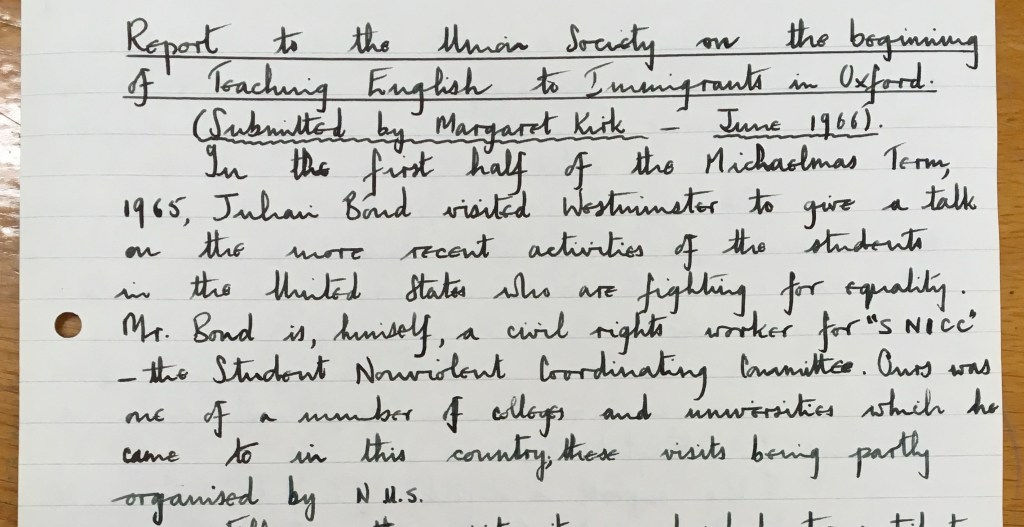 Report to the Union Society on the beginning
of Teaching English to Immigrants in Oxford.
(Submitted by Margaret Kirk - June 1966).
In the first half of the Michaelmas Term,
1965, Julian Bond visited Westminster to give a talk
on the more recent activities of the students
in the United States who are fighting for equality.
Mr. Bond is, himself, a civil rights worker for "SNICC"
- the Student Nonviolent Coordinating Committee. Ours was
one of a number of colleges and universities which he
came to in this country, these visits being partly
organised by N.U.S.